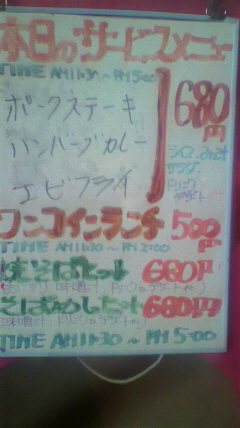 本日のサービスメニュー
TIME AM11:30～PM5:00
ポークステーキ
ハンバーグカレー
エビフライ
680円
ライス みそ汁
サラダ
ドリンク
デザート
ワンコインランチ 500円
TIME AM11:30～PM2:00
焼そばセット 680円
そばめしセット 680円
TIME AM11:30～PM5:00